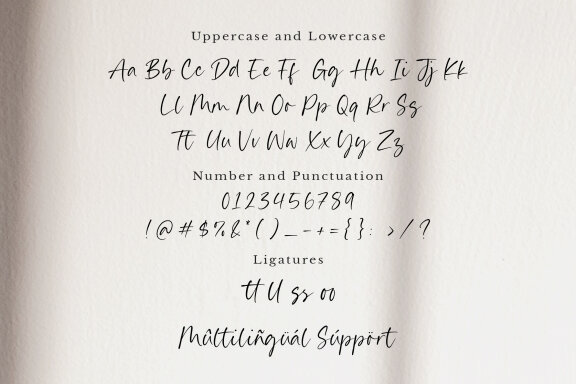 Uppercase and Lowercase
Aa Bb Cc Dd Ee Ff Gg Hh Ii Jj Kk
Ll Mm Nn Oo Pp Qq Rr Ss
Tt Uu Vv Ww Xx Yy Zz
Number and Punctuation
0123456789
!@#$%&*()_-+={}:>/?
Ligatures
tt ll ss oo
Mûltiliñgüál Súppört